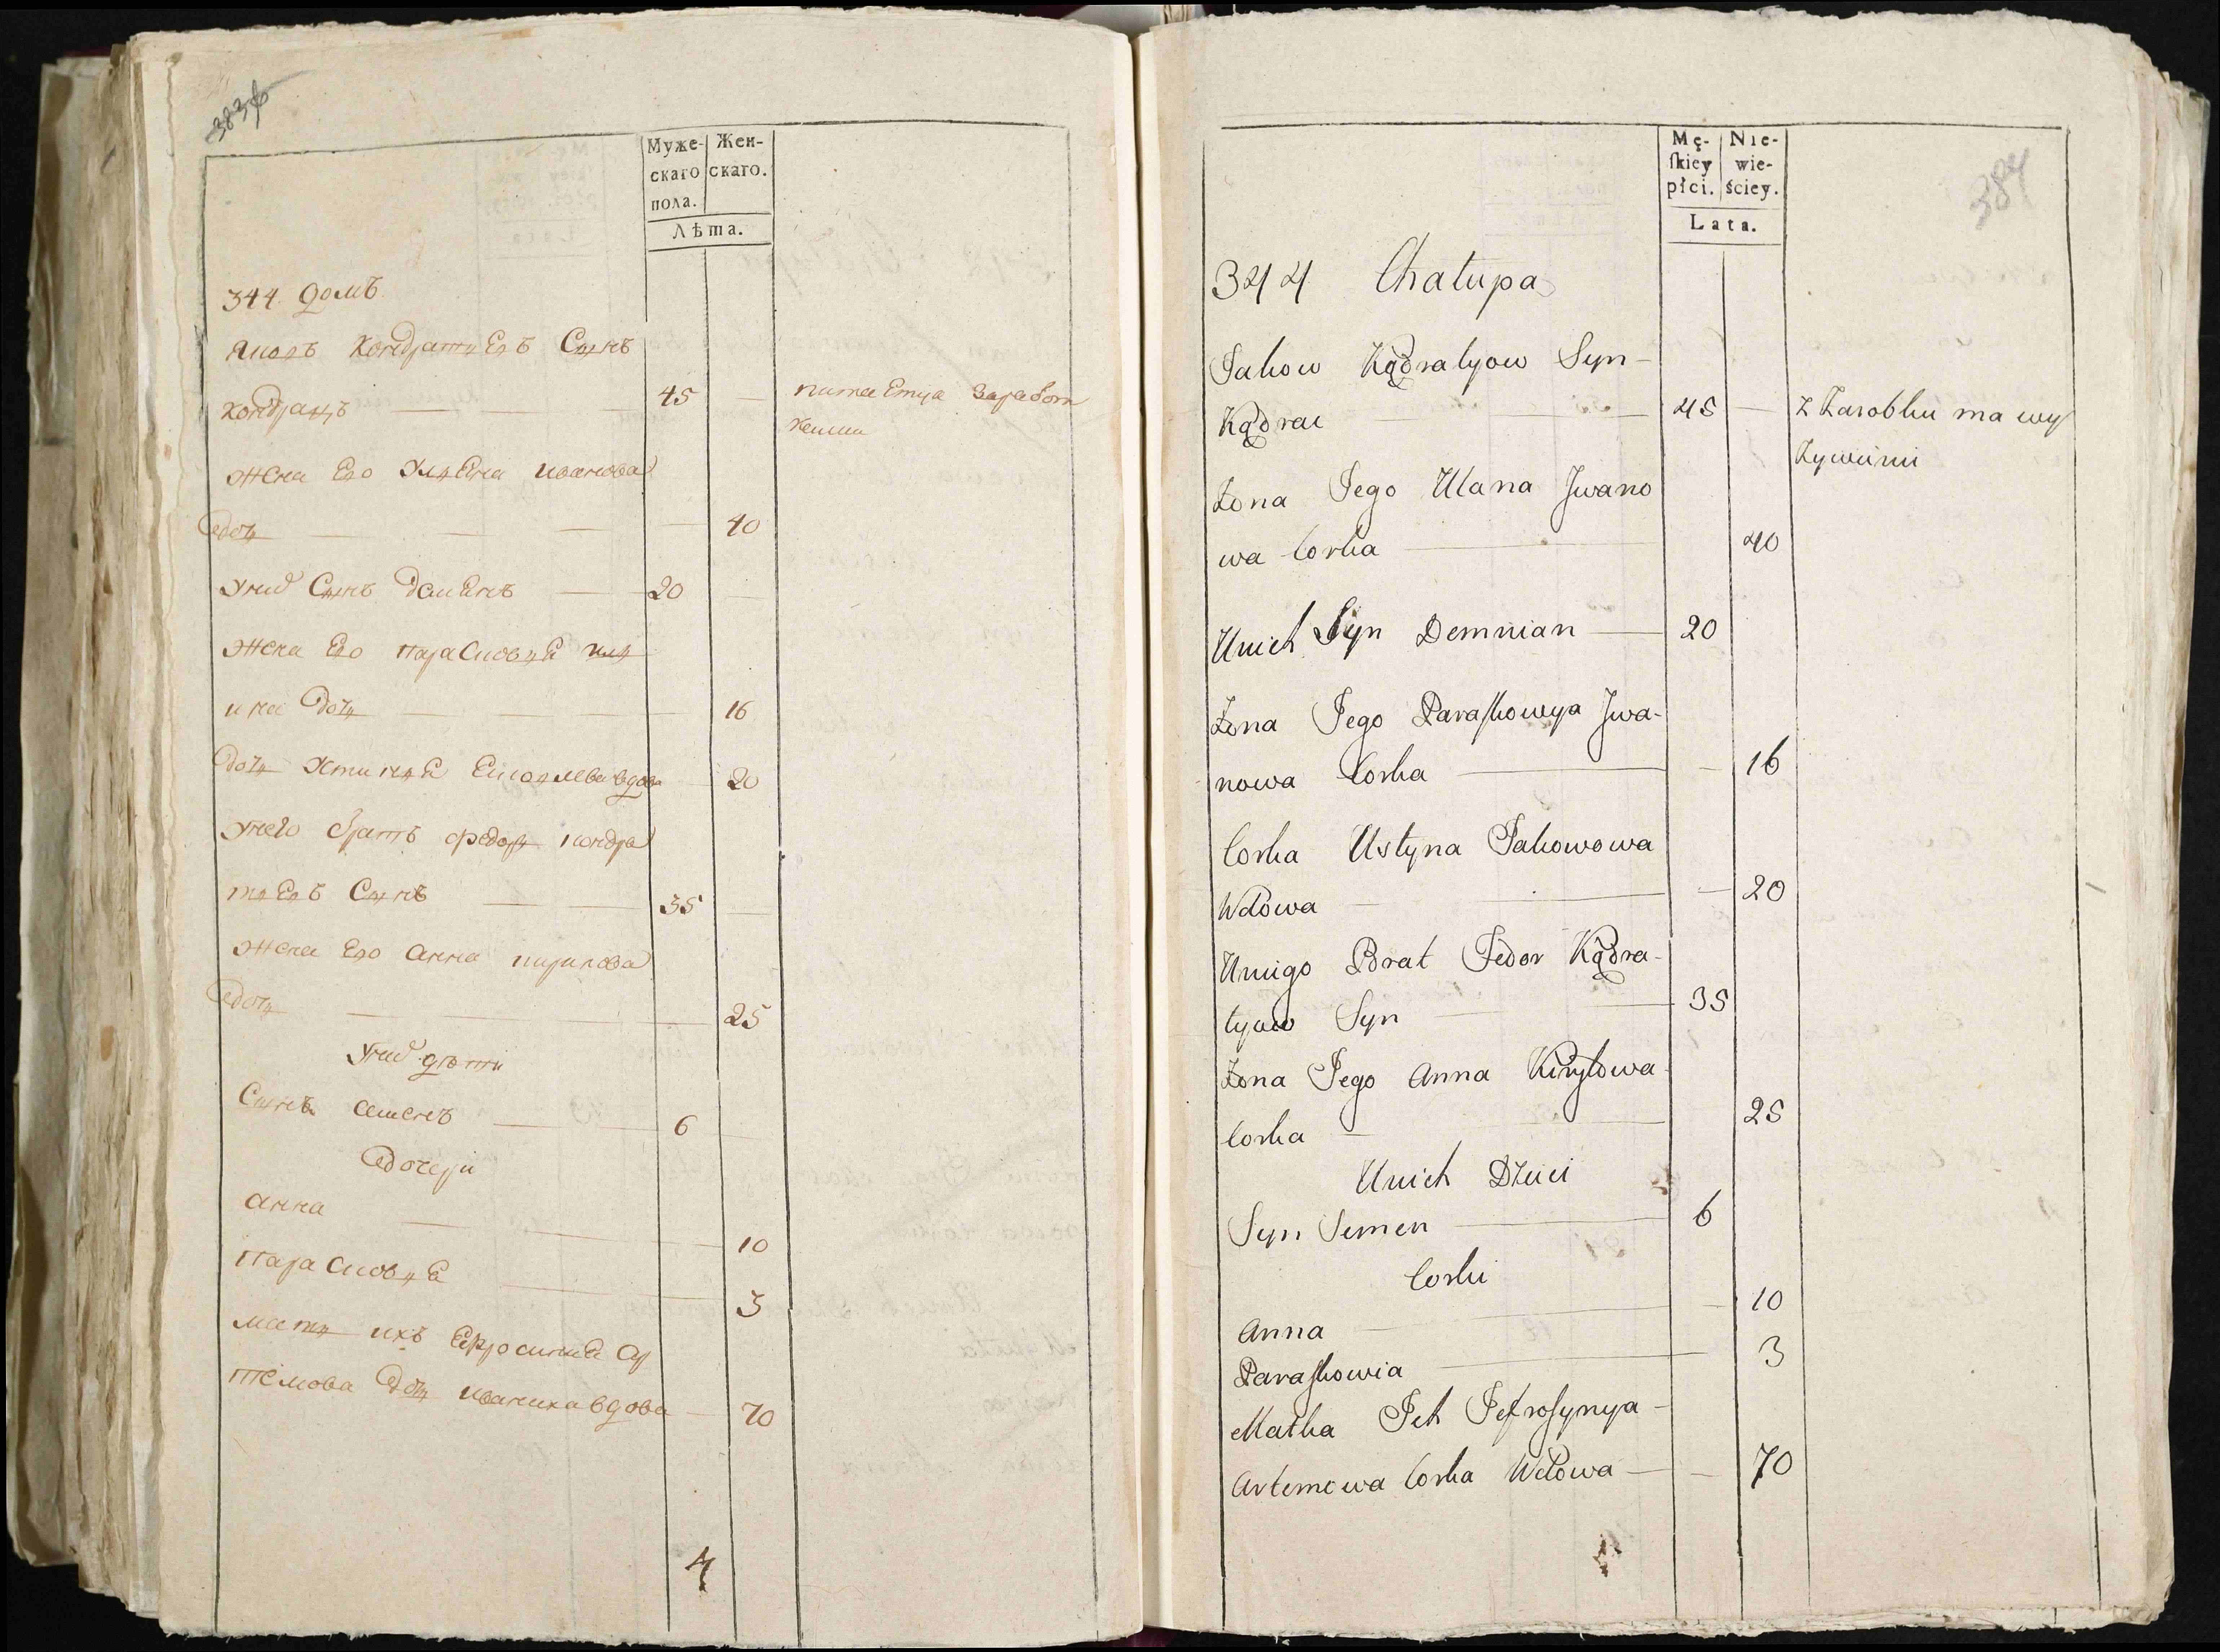 Муже-
скаго
пола.
Жен-
скаго.
Лѣта.
344 домъ
Яковъ Кондратьевъ Сынъ
Кондрацъ 45 питается Заработ
ками
Жена Его Ульяна иванова
дочь 40
Уних Сынъ Демянъ 20
Жена Его Парасковья
дочь 16
дочь Устинья Яковлева вдова 20
Унего братъ Федоръ Кондра
тьевъ Сынъ 35
Жена Его Анна кирилова
дочь 25
Уних дѣти
Сынъ Семенъ 6
дочери
Анна 10
Парасковья 3
мать ихъ Ефросинья Ар
темова дочь иваниха вдова 70
4
Mę-
ſkiey
płci.
Nie-
wie-
ściey.
Lata.
384
344 Chałupa
Jakow Kądratyow Syn
Kądrac 45 Z Zarobku ma wy
Zywieni
Zona Jego Ulana Jwano
wa Corka 40
Unich Syn Demnian 20
Zona Jego Paraſkowya Jwa-
nowa Corka 16
Corka Ustyna Jakowowa
Wdowa 20
Uniego Brat Fedor Kądra-
tyow Syn 35
Zona Jego Anna Kiryłowa
Corka 25
Unich Dzieci
Syn Semen 6
Corki
Anna 10
Paraſkowia 3
Matka Jch Jefroſynya
Artemowa Corka Wdowa 70